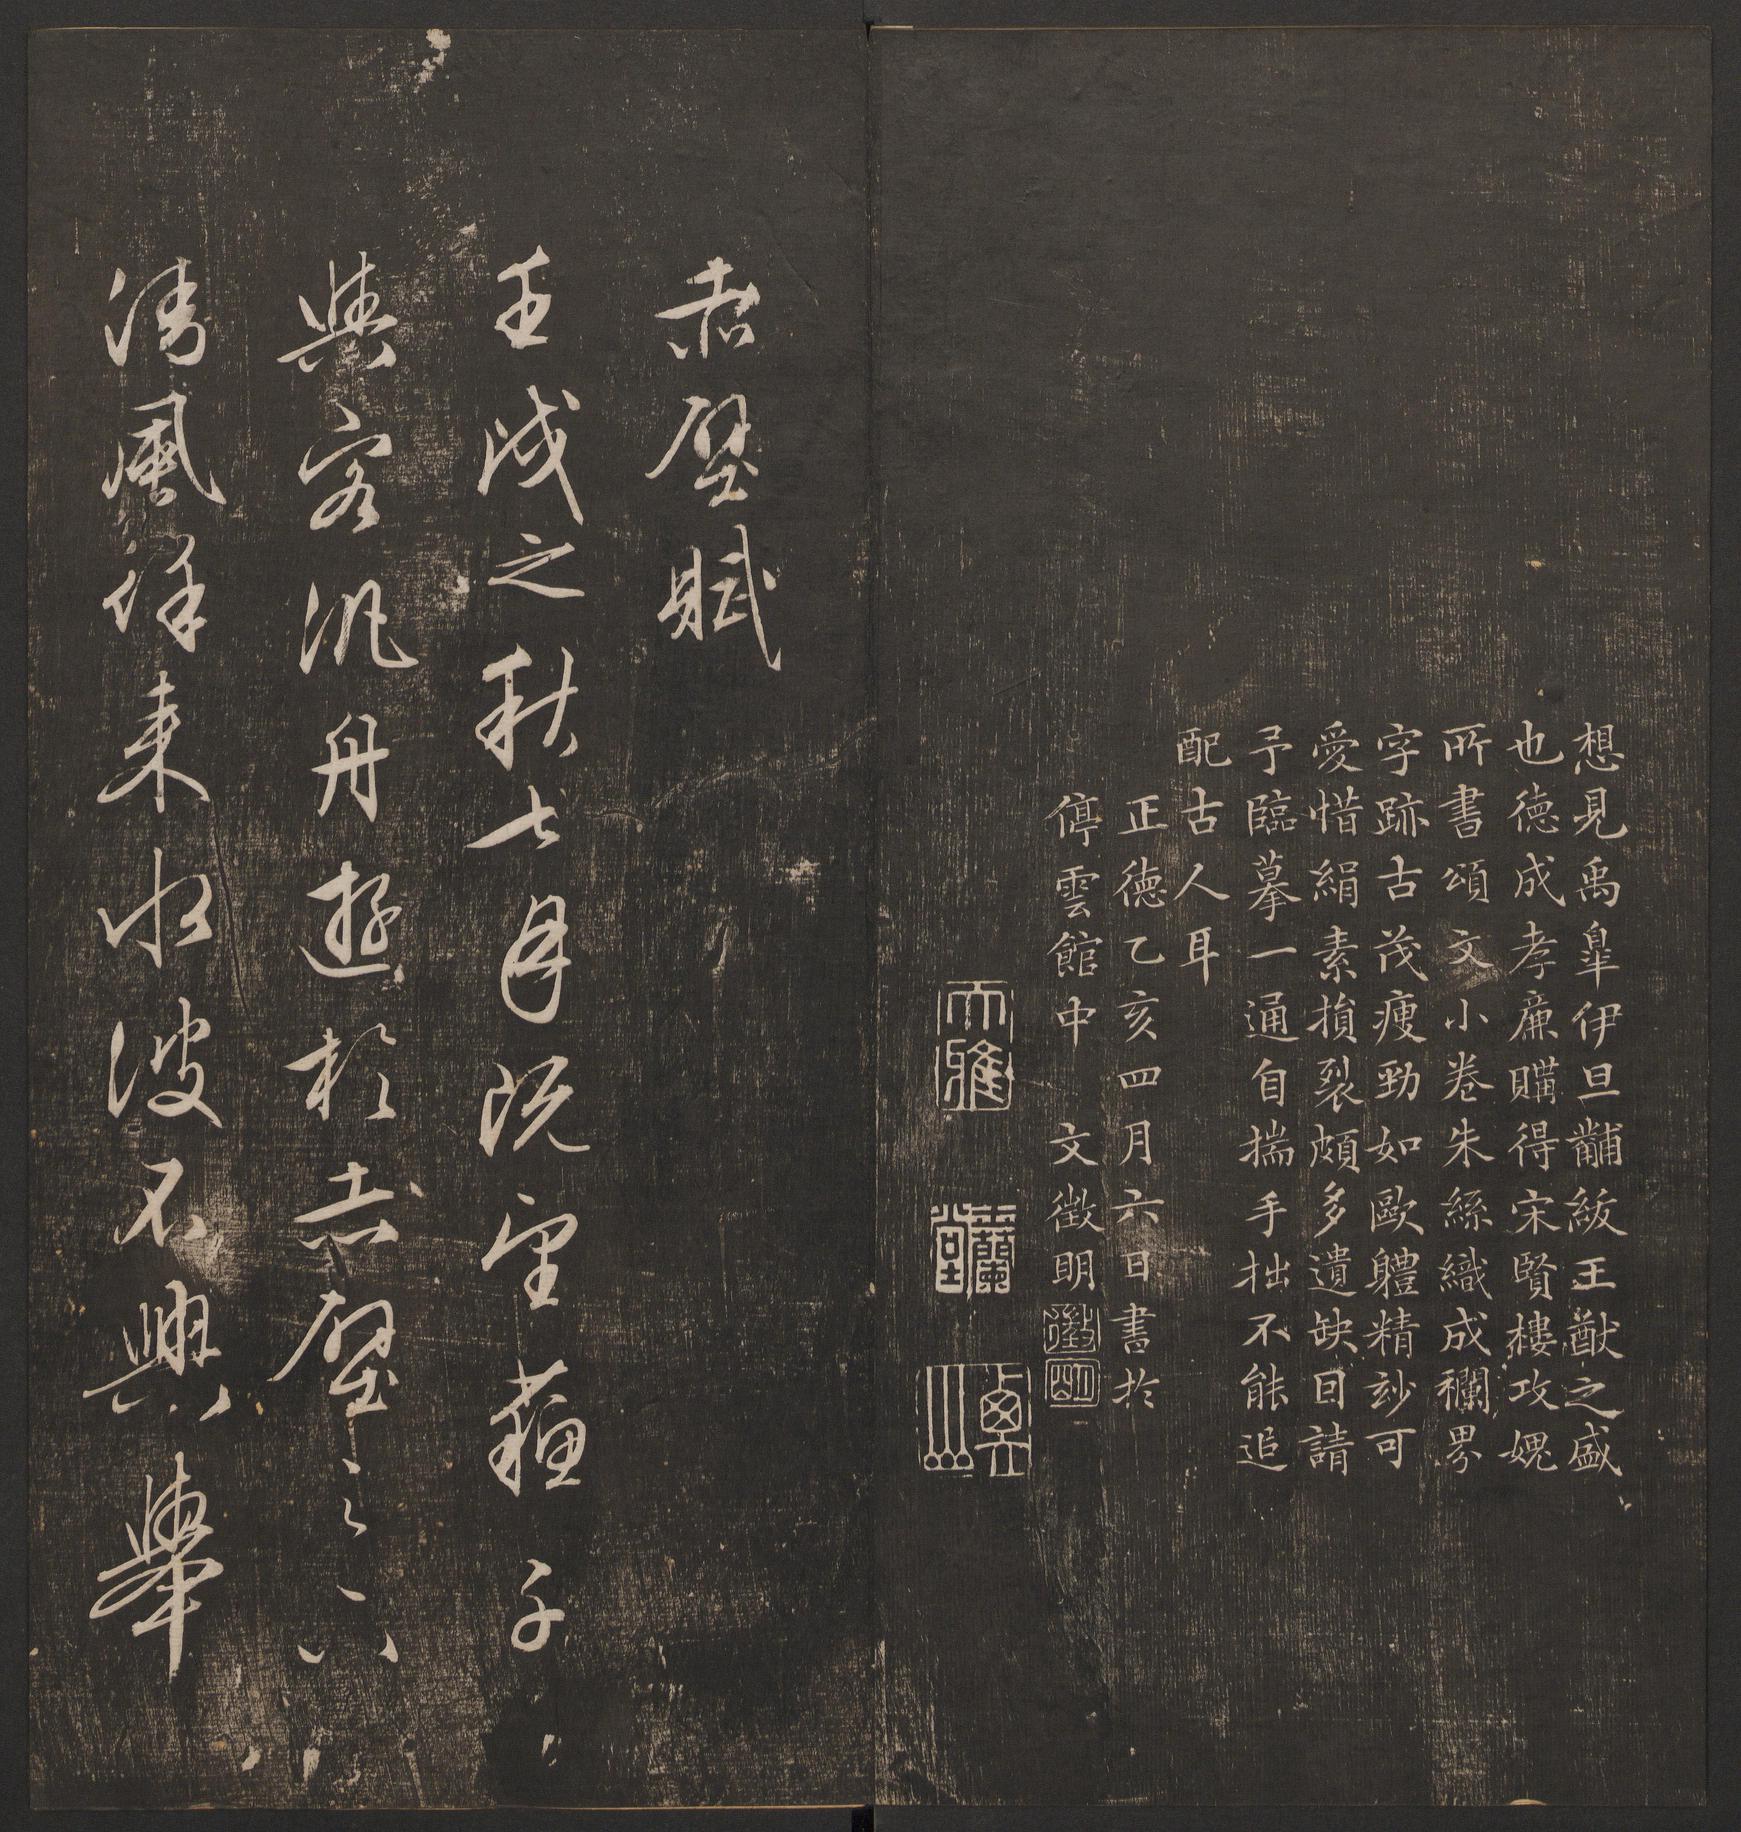 想見禹臯伊旦黼紱王猷之盛
也德成孝廉購得宋賢樓攻媿
所書頌文小卷朱絲織成襴界
字跡古茂瘦勁如歐體精玅可
愛惜絹素損裂頗多遺缺囙請
予臨摹一通自揣手拙不能追
配古人耳
正德乙亥四月六日書於
停雲館中 文徵明
徵明
大雅
蘭堂
赤壁賦
壬戌之秋七月既望蘇子
與客汎舟遊於赤壁之下
清風徐來水波不興舉